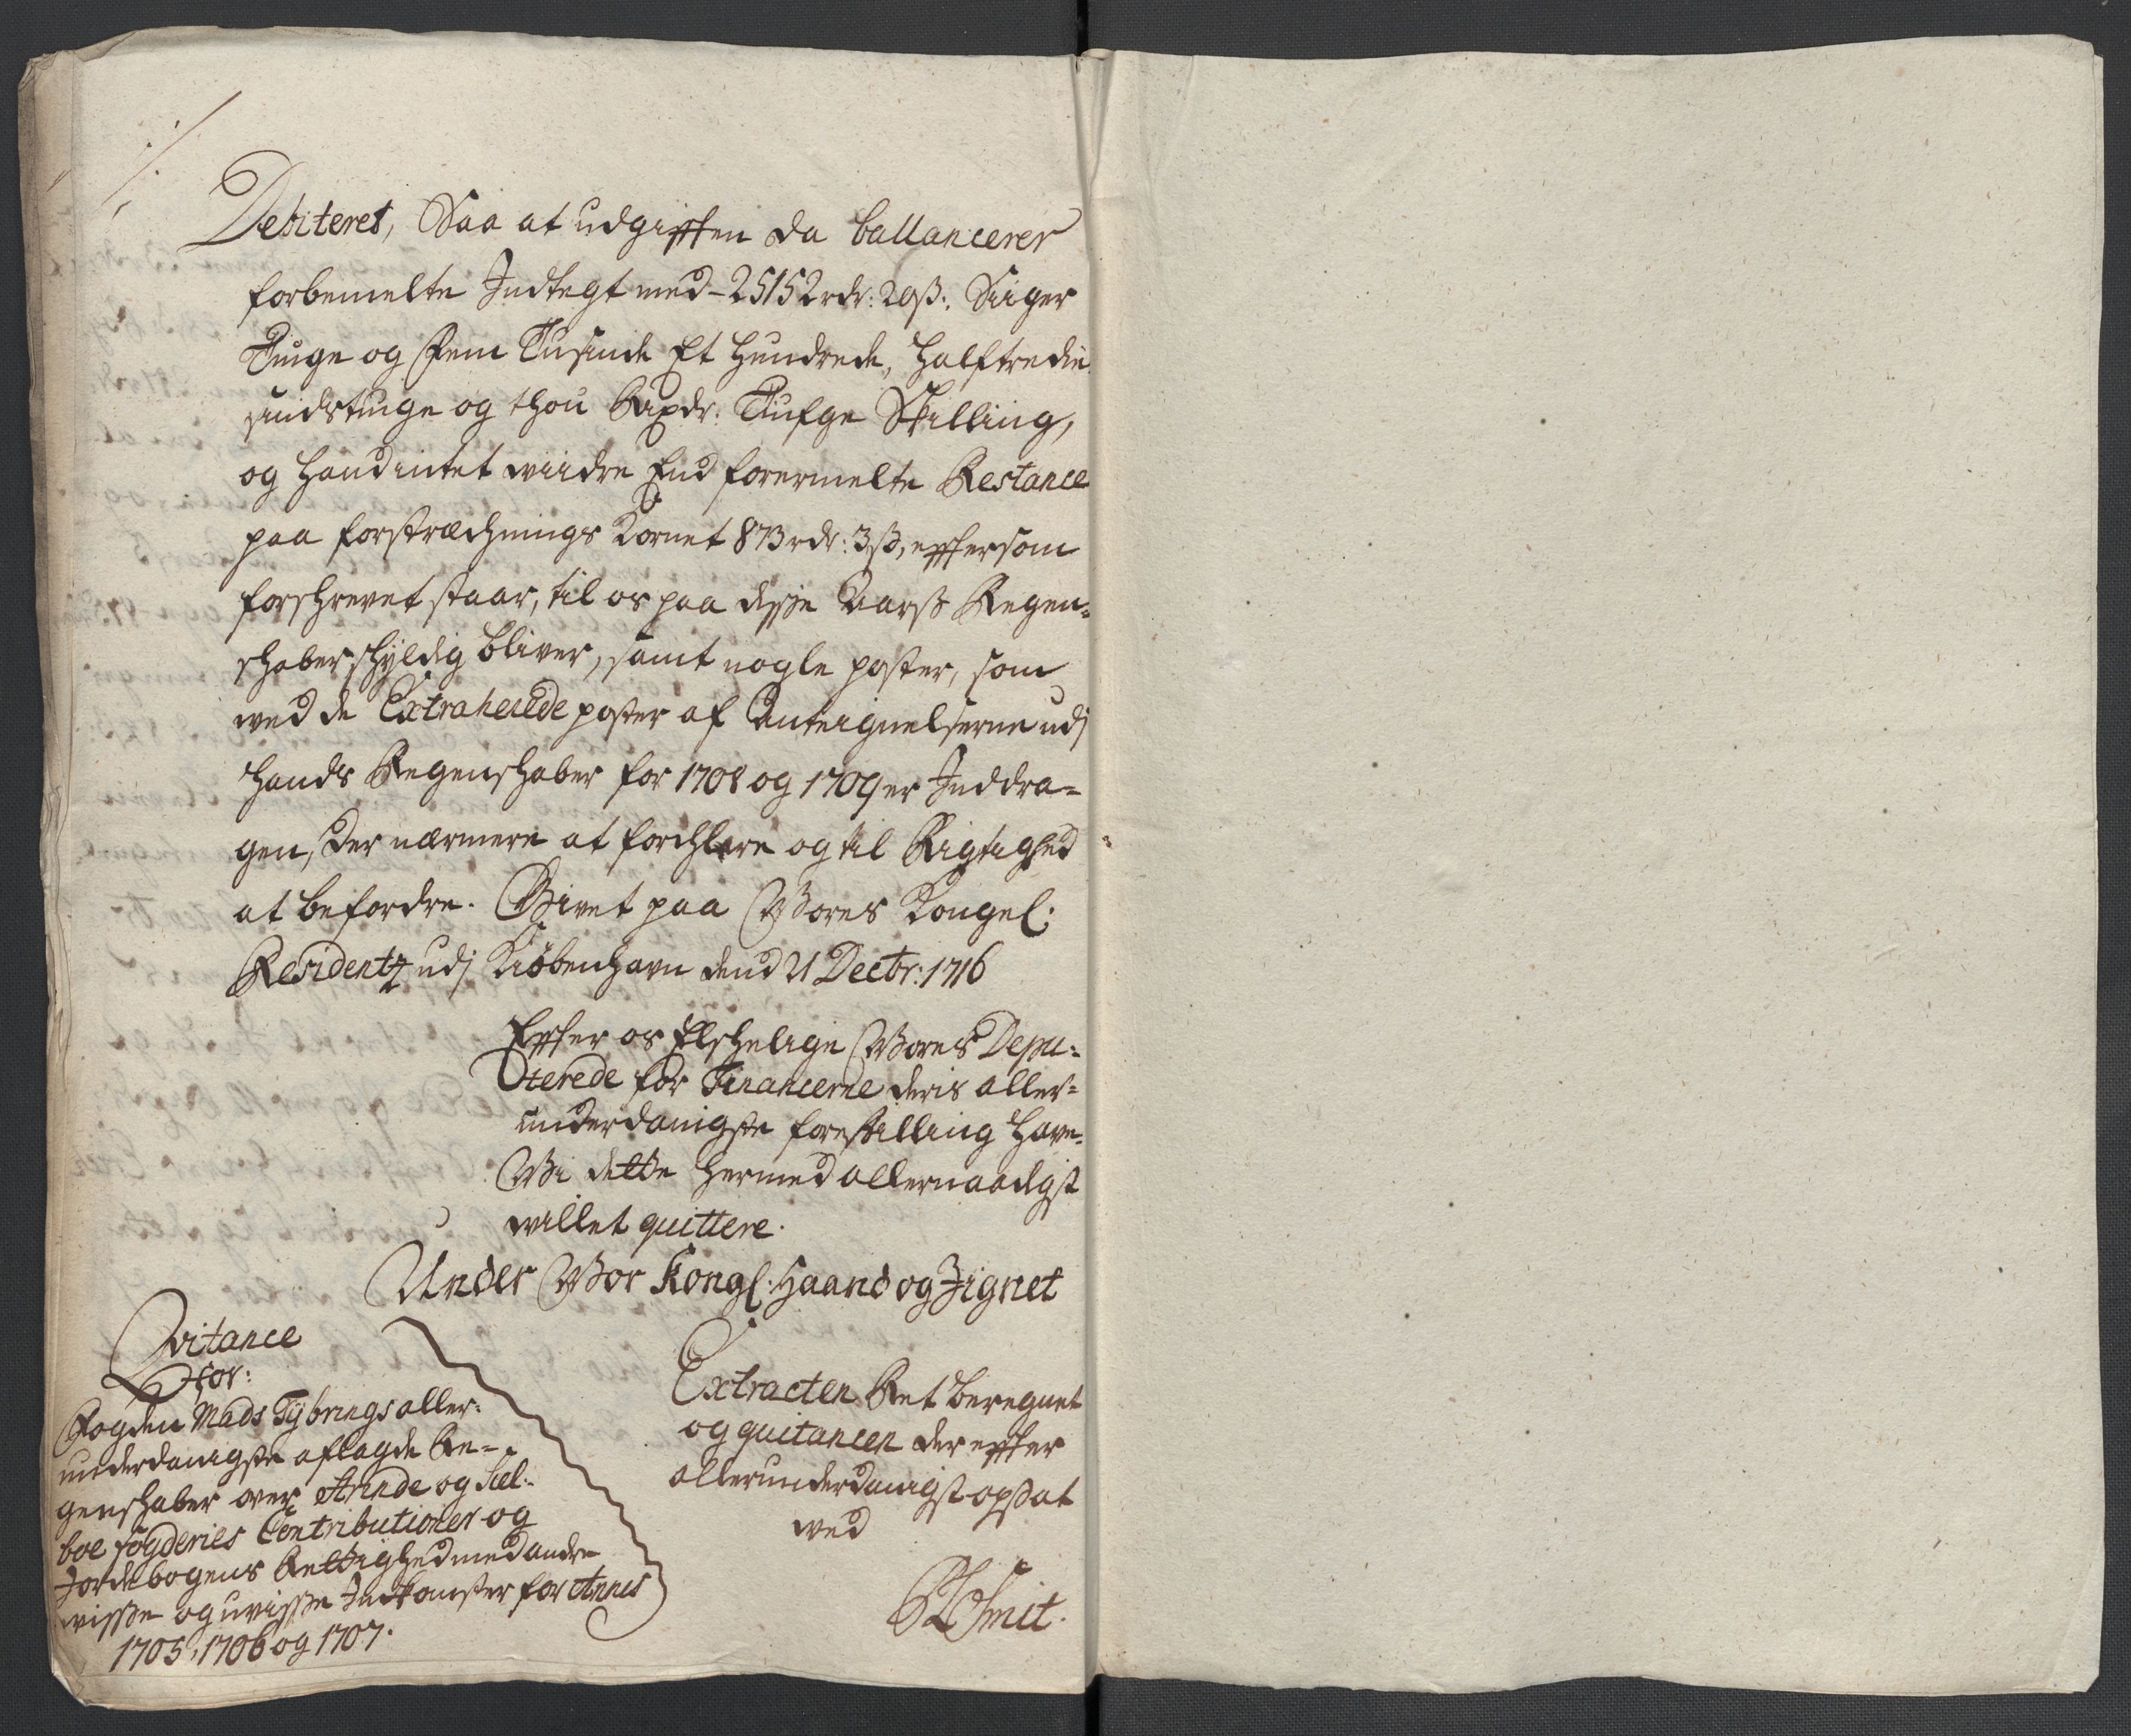 Debiteret, Saa at udgifften da ballancerer
forbemelte Indtegt med - 25152 rdr: 20 ß. Siiger
Tiuge og Fem Tusinde Et Hundrede, Halftredie
sindstiuge og thou Rixdr: Tiufge Skilling,
og Hand intet viidre End forermelte Restance
paa forstræknings Kornet 873 rdr: 3 ß, effter som
forskrevet staar, til os paa disse Aars Regen-
skaber skyldig bliver, samt nogle poster, som
ved de Extraherede poster af Anteignelserne udj
Hands Regenskaber for 1708 og 1709 er Inddra-
gen, der nærmere at forklare og til Rigtighed
at befordre. Givet paa Vores Kongel:
Residentz udj Kiöbenhavn dend 21 Decbr: 1716
Effter os Elskelige Vores Depu-
terede for Financerne deris aller-
underdanigste forestilling Have
Vi dette Hermed allernaadigst
villet quittere.
Under Vor Kongl: Haand og Zignet
Qvitance
for:
Fogden Mads Tybrings aller-
underdanigste aflagde Re-
genskaber over Strinde og Sel-
boe fogderies Contributioner og
Jordebogens Rettighed med andre
visse og uvisse Indkomster for Annis
1705, 1706 og 1707.
Extracten Ret beregnet
og quitancen der effter
allerunderdanigst opsat
ved
Smit.